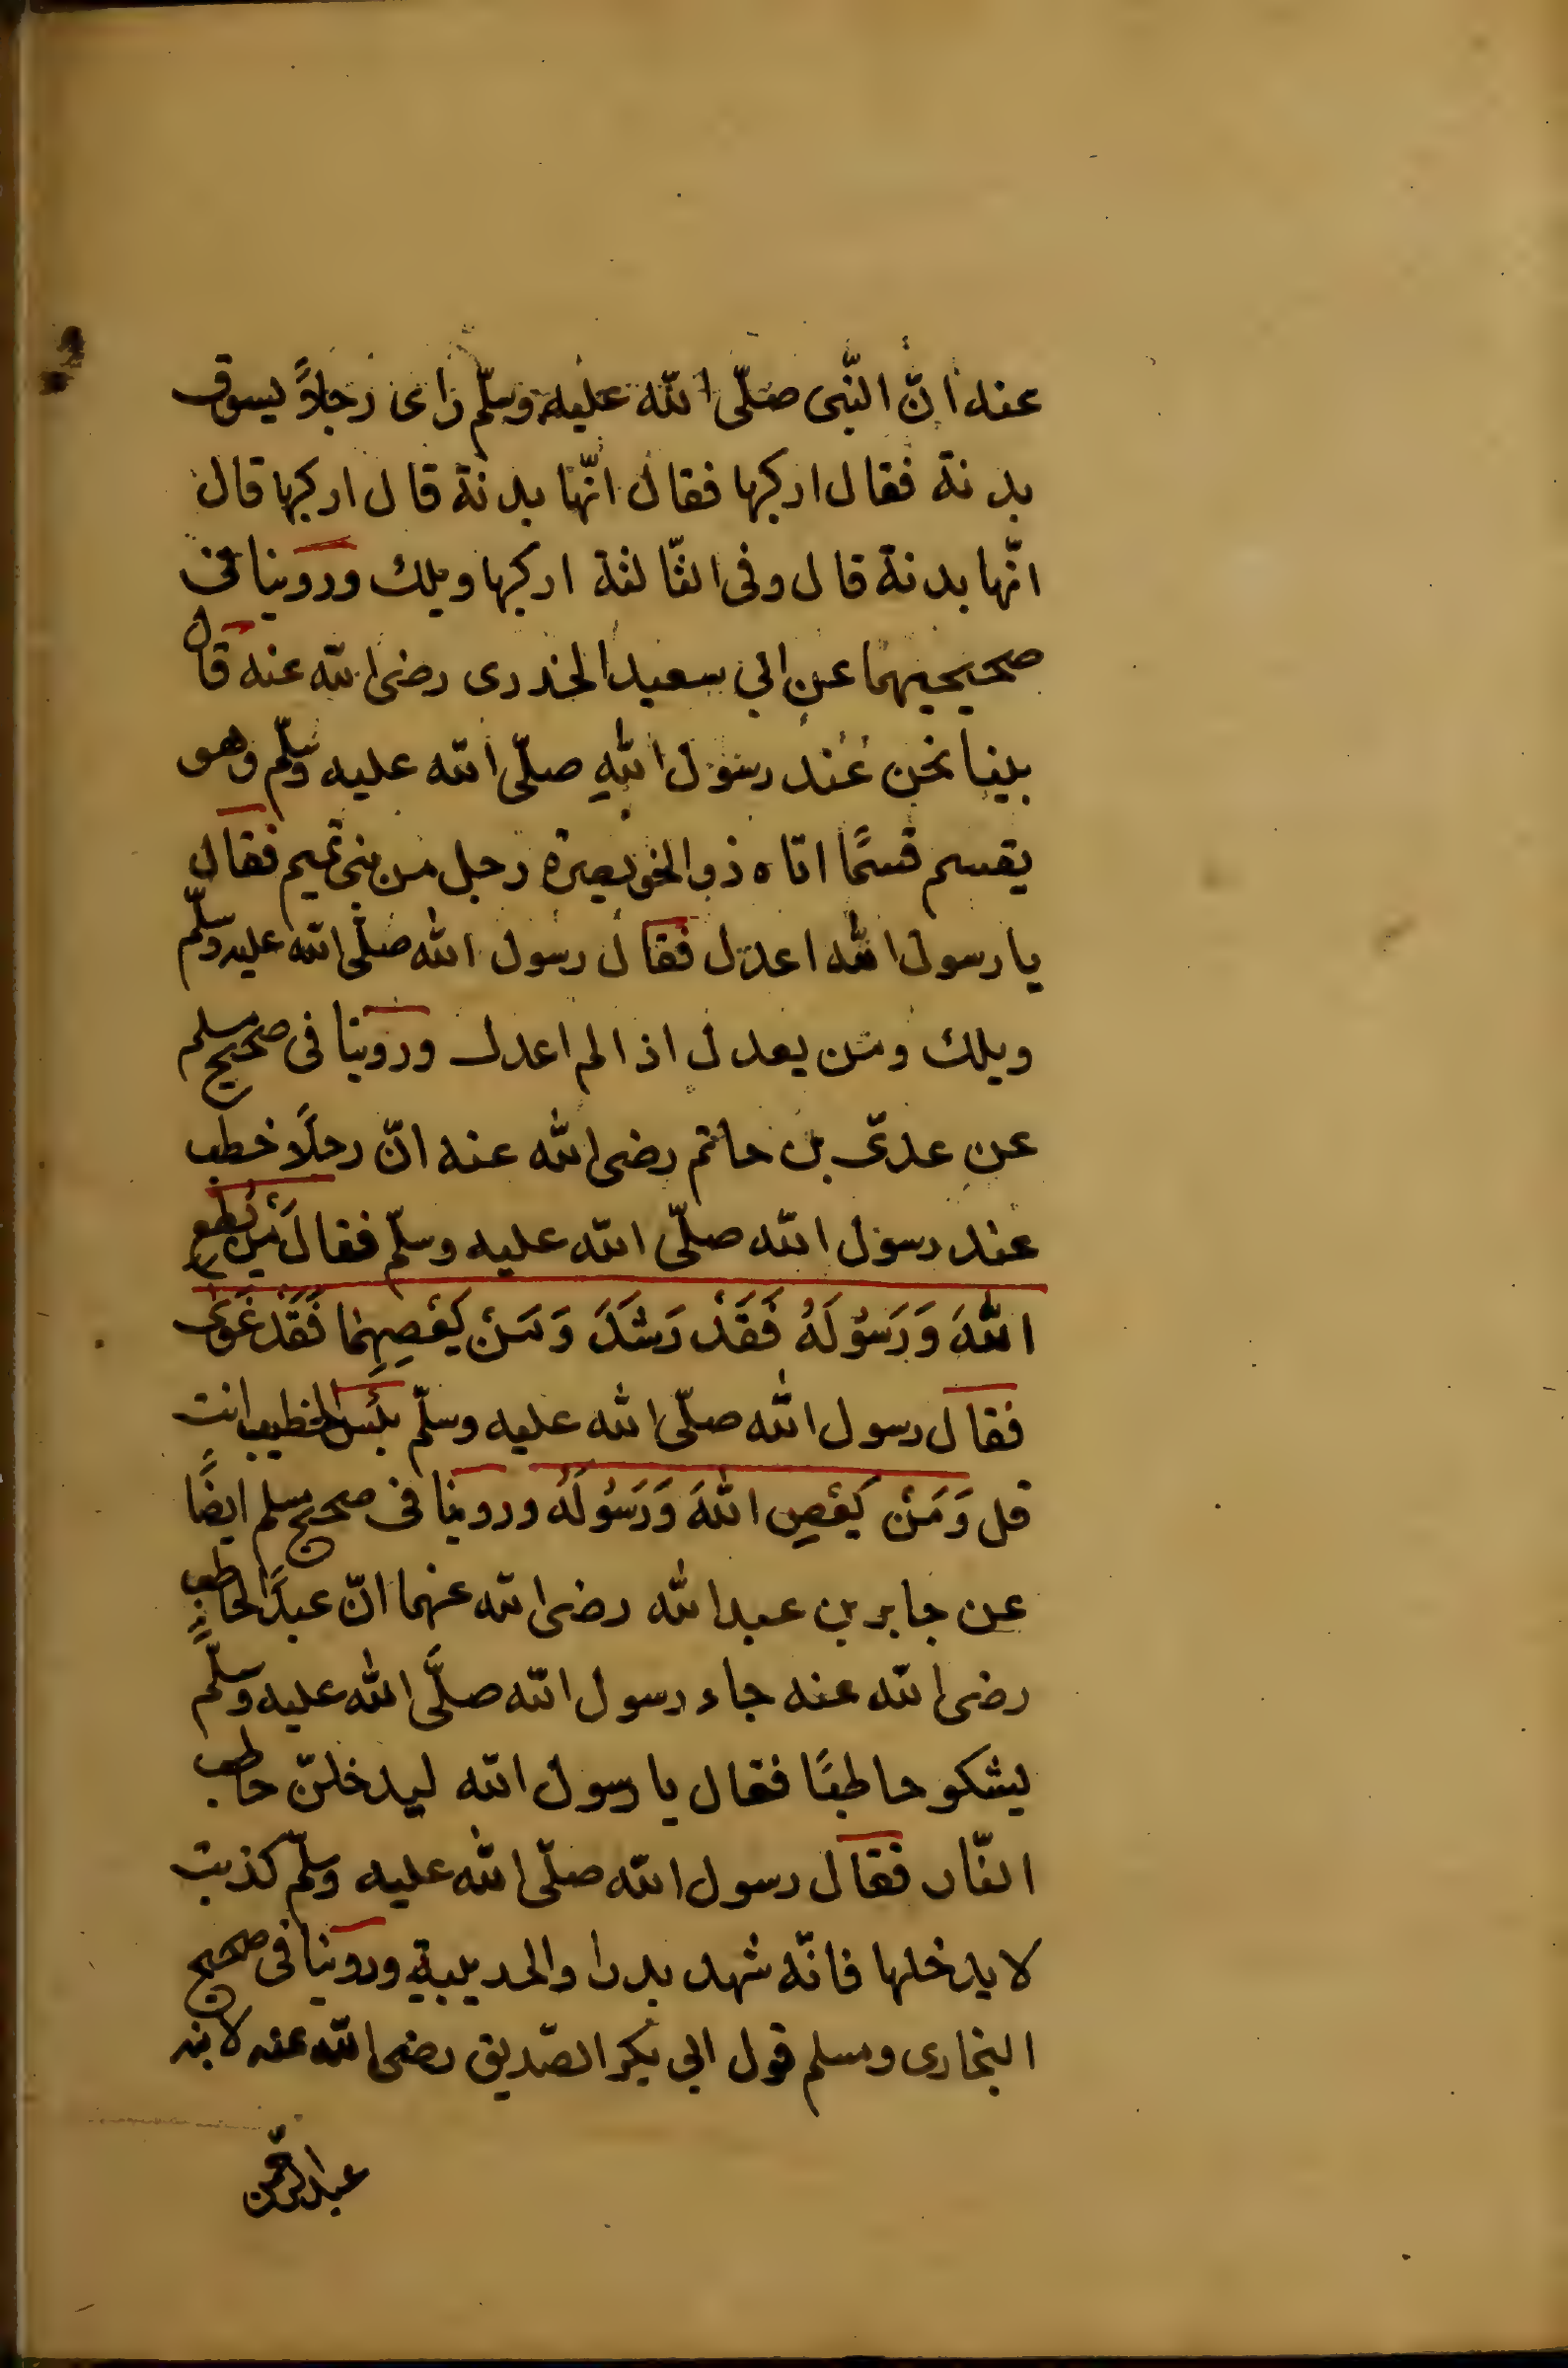 عنه انّ النّبى صلّى الله عليه وسلّم راى رجلاً يسوق
بدنة فقال اركبها فقال انّها بدنة قال اركبها قال
انّها بدنة قال وفى الثّالثة اركبها ويلك وروينا فى
صحيحيهما عن ابي سعيد الخدرى رضى الله عنه قال
بينا نحن عند رسول اللهِ صلّى الله عليه وسلّم وهو
يقسم قسمًا اتاه ذو الخويصرة رجل من بنى تميم فقال
يا رسول الله اعدل فقال رسول الله صلّى الله عليه وسلّم
ويلك ومن يعدل اذا لم اعدل وروينا فى صحيح مسلم
عن عدىّ بن حاتم رضى الله عنه انّ رجلاً خطب
عند رسول الله صلّى الله عليه وسلّم فقال مَنْ يُطِعِ
اللّٰهَ وَرَسُوْلَهُ فَقَدْ رَشَدَ وَمَنْ يَعْصِهِمَا فَقَدْ غَوٰى
فقال رسول الله صلّى الله عليه وسلّم بئس الخطيب انت
قل وَمَنْ يَعْصِ اللّٰهَ وَرَسُوْلَهُ وروينا فى صحيح مسلم ايضًا
عن جابر بن عبد الله رضى الله عنهما انّ عبدًا لحاطبٍ
رضى الله عنه جاء رسول الله صلَّى الله عليه وسلَّم
يشكو حاطبًا فقال يا رسول الله ليدخلنّ حاطب
النّار فقال رسول الله صلّى الله عليه وسلّم كذبت
لا يدخلها فانّه شهد بدرا والحديبية وروينا فى صحيح
البخارى ومسلم قول ابى بكر الصّديق رضى الله عنه لابنه
عبد الرّحمن